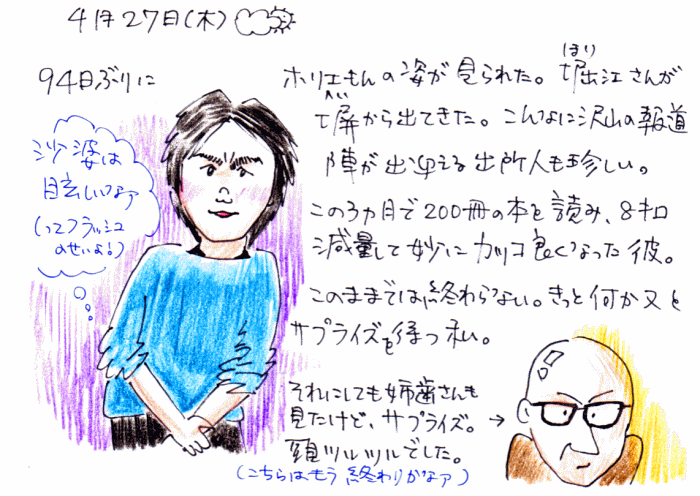 4月27日(木)
94日ぶりに
ホリエもんの姿が見られた。堀江さんが
ほり
塀から出てきた。こんなに沢山の報道
へい
陣が出迎える出所人も珍しい。
この3ヵ月で200冊の本を読み、8キロ
減量して妙にカッコ良くなった彼。
このままでは終わらない。きっと何か又と
サプライズを待つ私。
それにしても姉歯さんも
見たけど、サプライズ。→
頭ツルツルでした。
(こちらはもう終わりかなァ)
シャバは
眩しいなァ
(ってフラッシュ
のせいよ!)